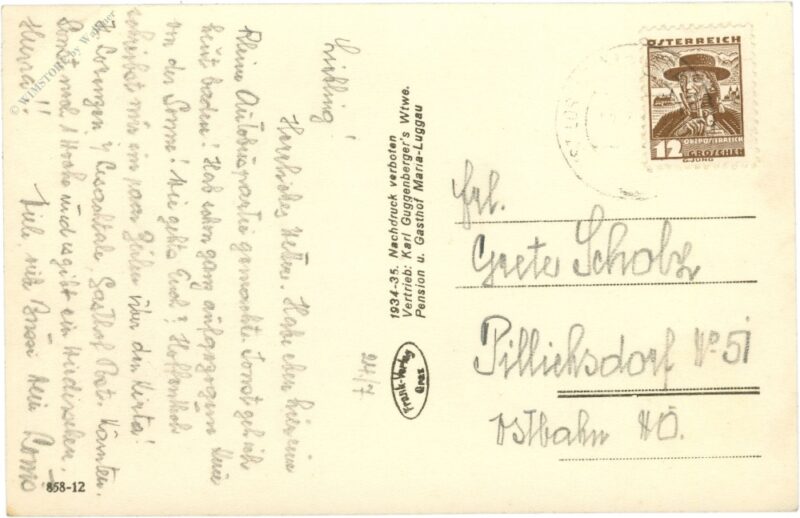 Liebling!
Herrliches Wetter. Habe eben hier eine
kleine Autobuspartie gemacht. Sonst geh ich
heut baden! Hab schon ganz aufgezogene
von der Sonne! Wie gehts Euch? Hoffentlich
schreibst mir ein paar Zeilen über den
Lorenzen i/ Lesachtale, Gasthof Post, Kärnten.
Sonst noch 1 Woche und es gibt ein Wiedersehen.
Hurra!! Viele, viele Bussi Dein Romo
24/7
1934-35. Nachdruck verboten
Vertrieb: Karl Guggenberger's Wtwe.
Pension u. Gasthof Maria-Luggau
Frank-Verlag
Graz
858-12
ÖSTERREICH
OBERÖSTERREICH
12 GROSCHEN
G. JUNG
Frl.
Grete Scholz
Pillichsdorf No 51
Ostbahn NÖ.
© WIMSTORE by W. Maier